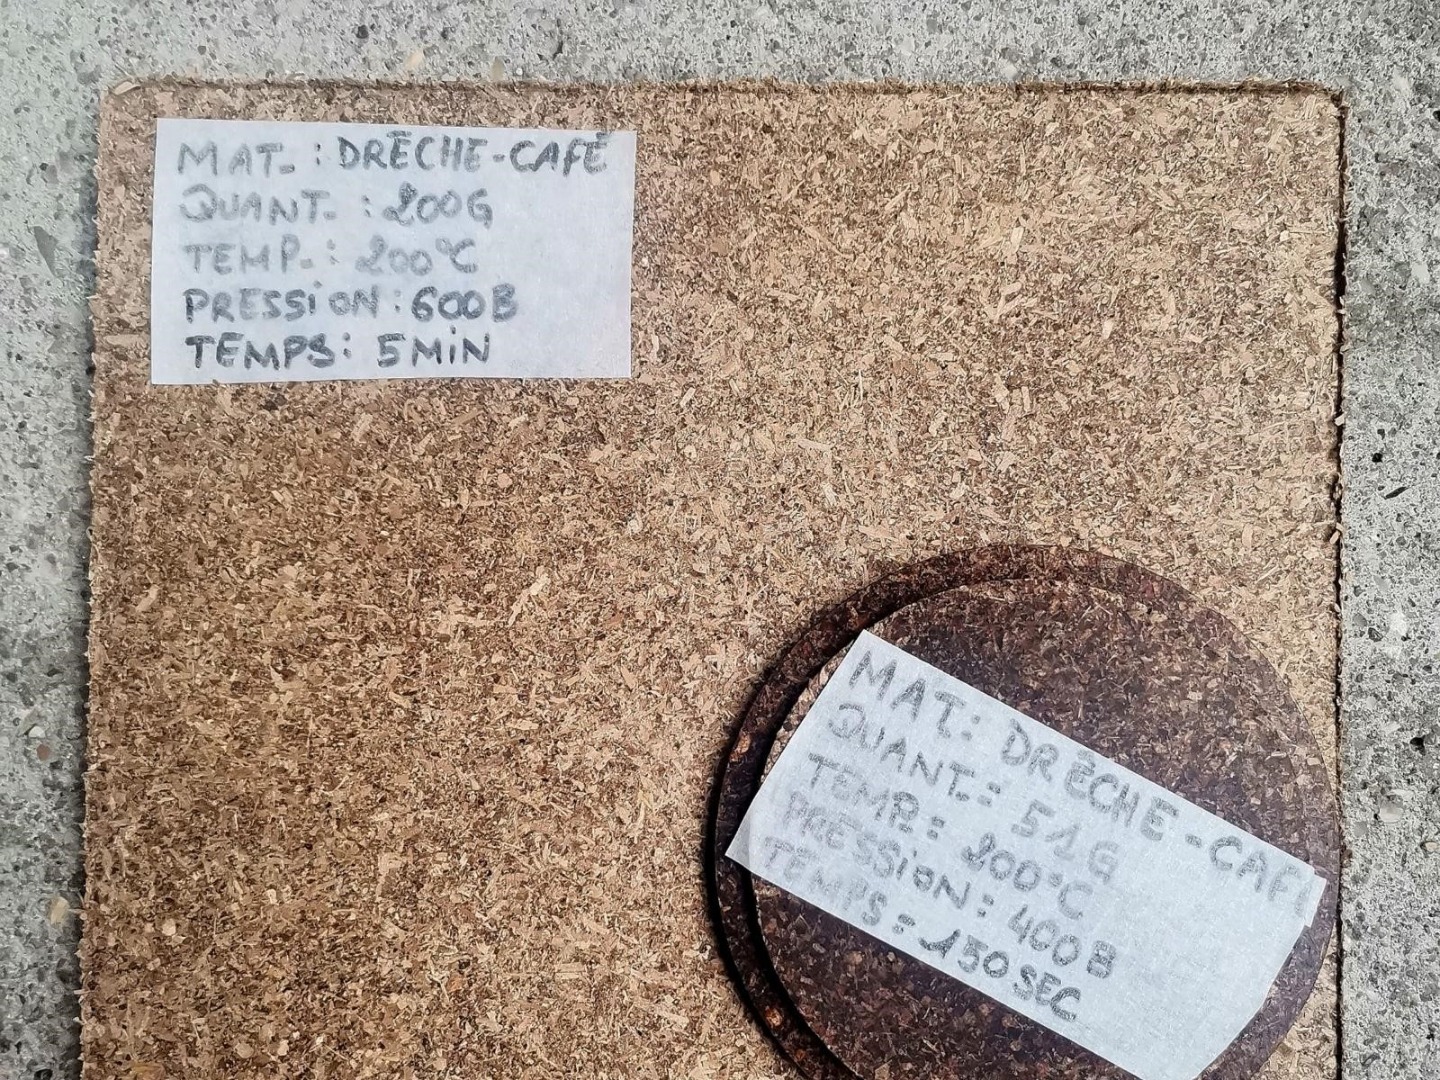 MAT. : DRÊCHE-CAFÉ
QUANT. : 200G
TEMP. : 200°C
PRESSION : 600B
TEMPS : 5 MIN
MAT : DRÊCHE-CAFÉ
QUANT. : 51G
TEMP. : 200°C
PRESSION : 400B
TEMPS : 150 SEC